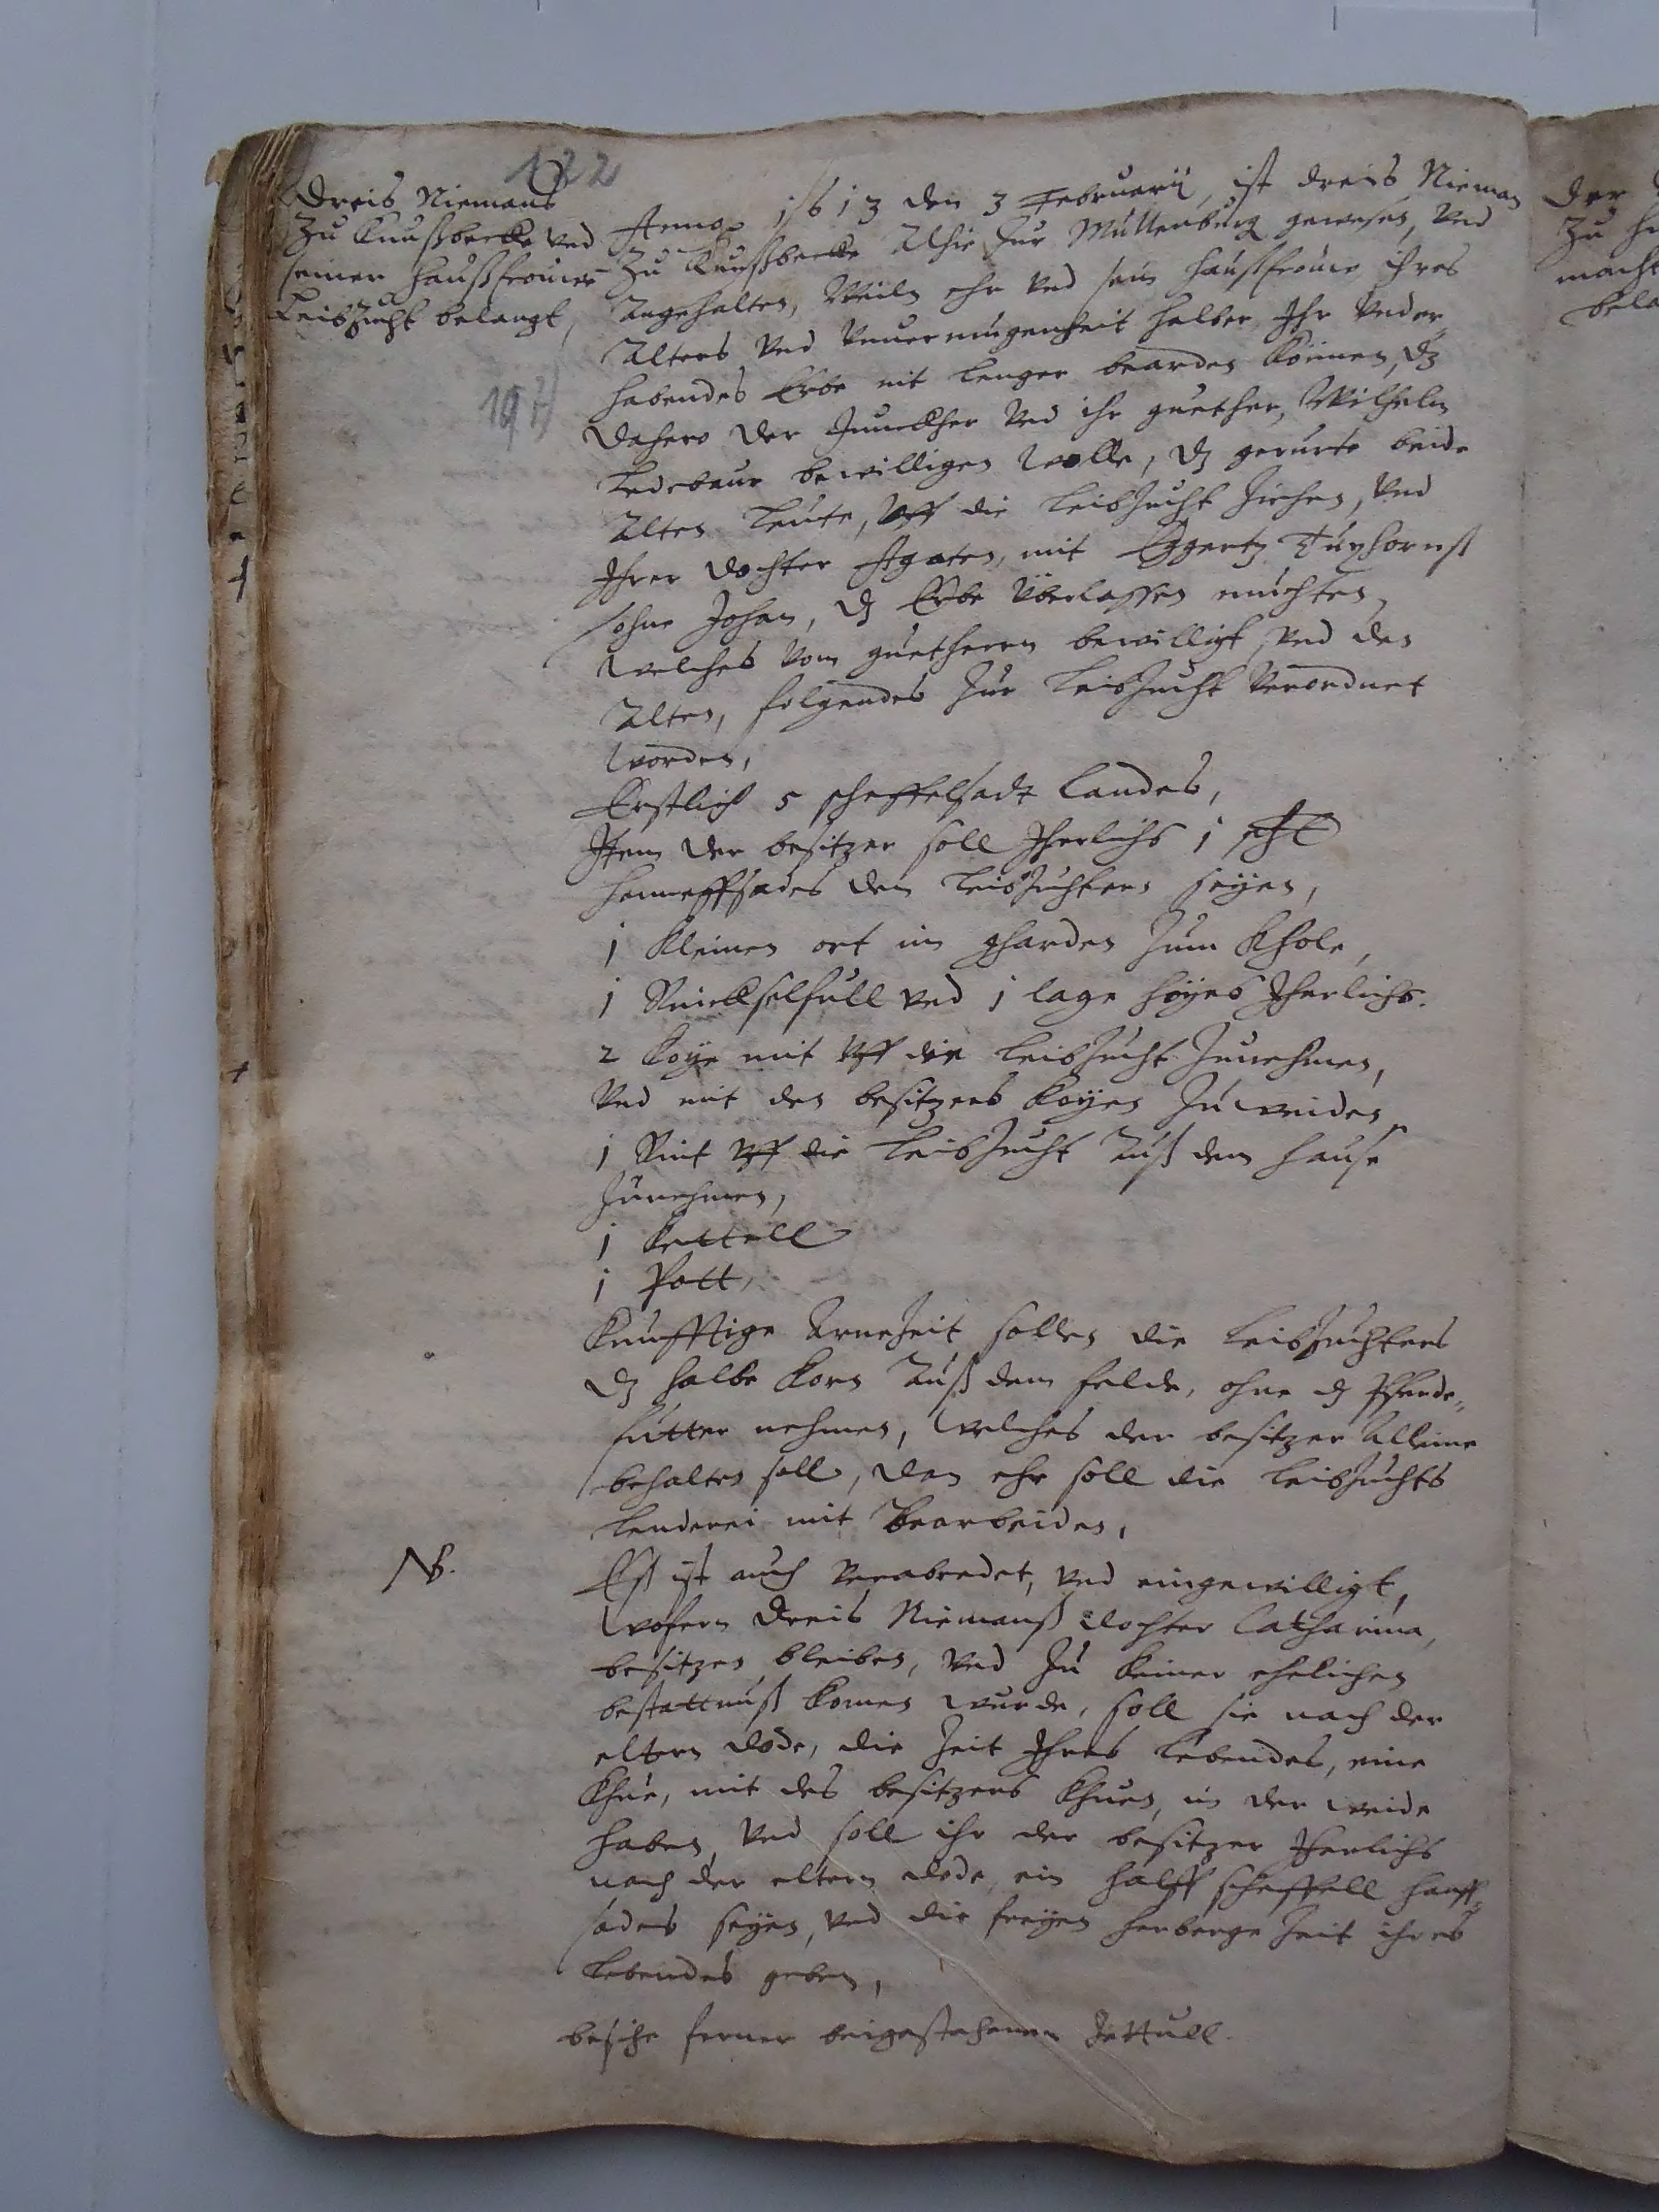 122
Dreis Niemans
zu Knußbecke vnd
seiner haußfrouwe
Leibzucht belangt,
197
Anno 1613 den 3 Februarij, ist dreis Nieman
zu Knußbecke Alhie zur Mullenburg gewesen, vnd
angehalten, Weiln ehr vnd sein haußfrouwe ihres
Alters vnd vnuermugenheit halber Ihr vnder„
habendes Erbe nit lenger bearden können, dz
dahero der Junckher vnd ihr guether, Wilhelm
Ledebaur bewilligen wolle, dz gerurte beide
Alten leute, vff die leibzucht ziehen, vnd
Ihrer dochter Agaten, mit Eggertz Tuxhornß
sohne Johan, dz Erbe vberlassen muchten,
welches vom guetherrn bewilligt, vnd den
Alten, folgendes zur leibzucht verordnet
worden,
Erstlich 5 scheffelsadt landes,
Item der besitzer soll Jherlichs 1 schl
hanneffsades den leibzuchtern seyen,
1 kleinen ort im gharden zum khole,
1 lage hoyes Jherlichs.
2 koye mit vff die leibzucht zunehmen,
vnd mit des besitzers koyen zu weiden,
1 Rint vff die leibzucht auß dem hause
zunehmen,
1 kettell
1 Pott,
Kunfftige Arnezeit sollen die leibzuchters
dz halbe korn auß dem felde, ohne dz Pferde„
futter nehmen, welches der besitzer alleine
behalten soll, dan ehr soll die leibzuchts
lenderei mit bearbeiden,
NB.
Eß ist auch verabredet, vnd eingewilligt,
wofern Dreis Niemanß dochter Catharina,
besitzen bleiben, vnd zu keiner ehelichen
bestattnuß komen wurde, soll sie nach der
eltern dode, die zeit Ihres lebendes, eine
khue, mit des besitzers khuen, in der weide
haben, vnd soll ihr der besitzer Jherlichs
nach der eltern dode, ein halff scheffell hanff„
sades seyen, vnd die freyen herberge zeit ihres
lebendes geben,
besihe ferner beigestochenen Zettull.